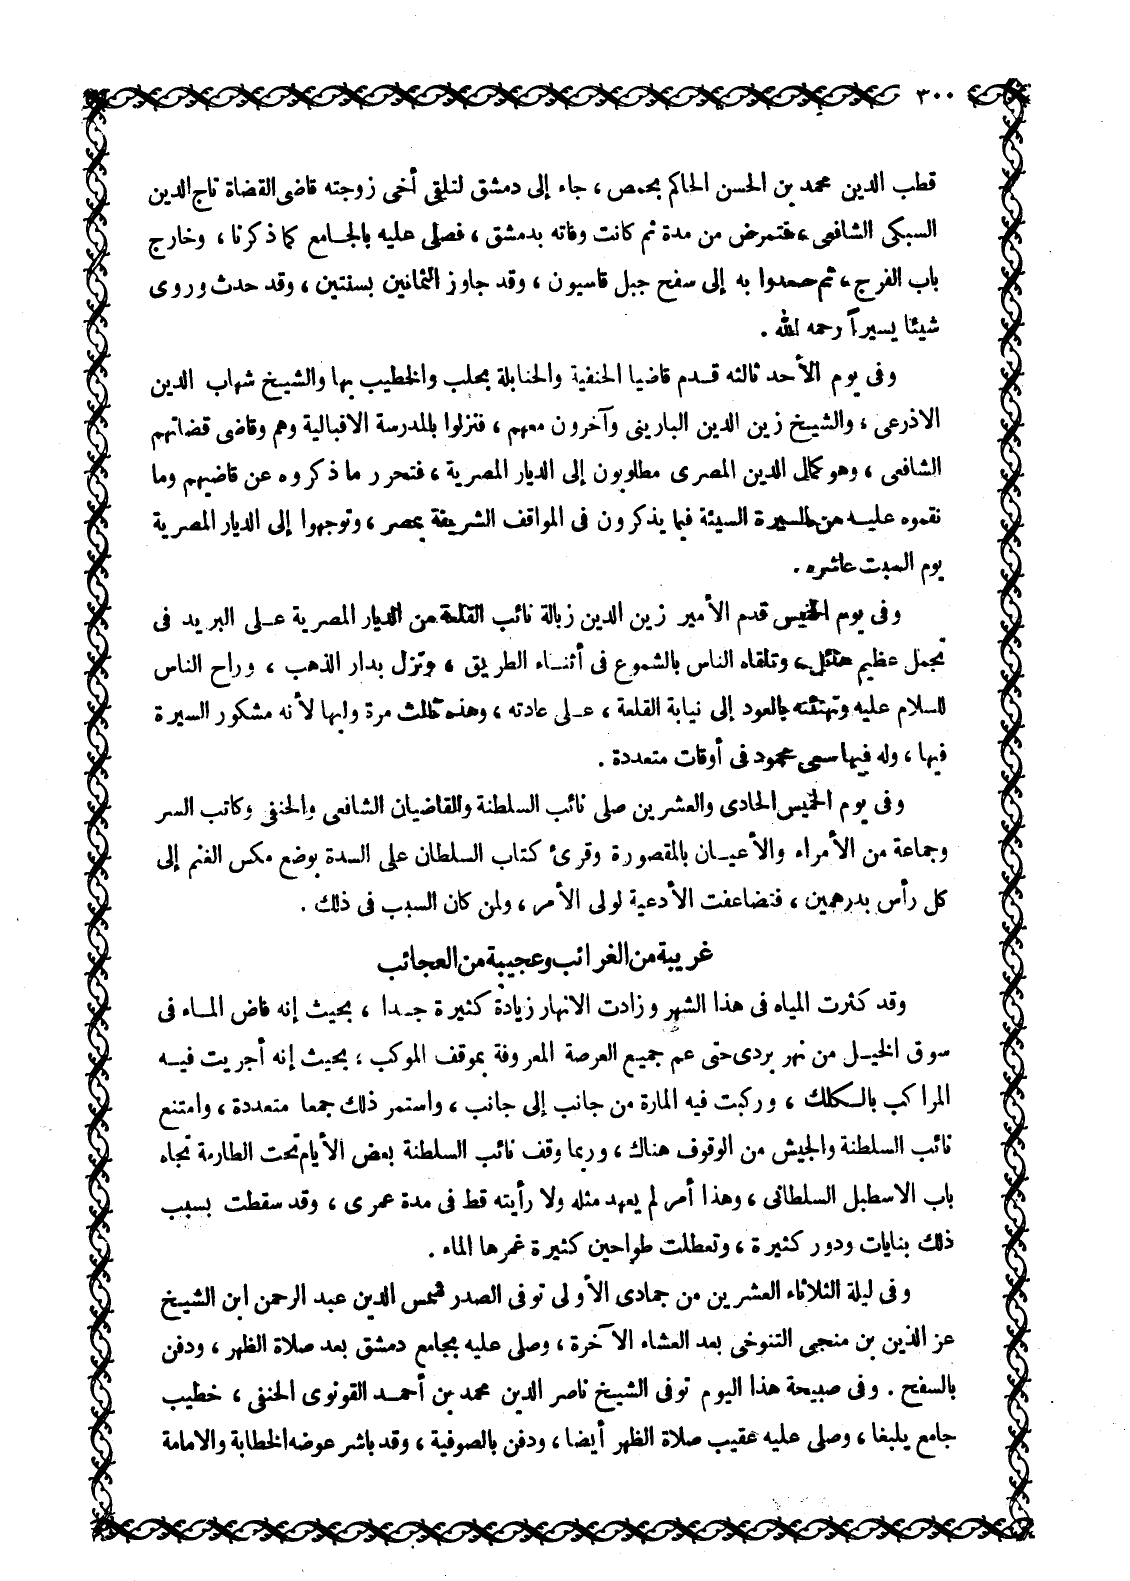 ٣٠٠
قطب الدين محمد بن الحسن الحاكم بحمص ، جاء إلى دمشق لتلقى أخى زوجته قاضى القضاة تاج الدين
السبكى الشافعى ، فتمرض من مدة ثم كانت وفاته بدمشق ، فصلى عليه بالجامع كما ذكرنا ، وخارج
باب الفرج ، ثم صعدوا به إلى سفح جبل قاسيون ، وقد جاوز الثمانين بسنتين ، وقد حدث وروى
شيئا يسيراً رحمه الله .
وفى يوم الأحد ثالثه قدم قاضيا الحنفية والحنابلة بحلب والخطيب بها والشيخ شهاب الدين
الاذرعى ، والشيخ زين الدين البارينى وآخرون معهم ، فنزلوا بالمدرسة الاقبالية وهم وقاضى قضاتهم
الشافعى ، وهو كمال الدين المصرى مطلوبون إلى الديار المصرية ، فتحرر ما ذكروه عن قاضيهم وما
نقموه عليه من السيرة السيئة فيما يذكرون فى المواقف الشريفة بمصر ، وتوجهوا إلى الديار المصرية
يوم السبت عاشره .
وفى يوم الخميس قدم الأمير زين الدين زبالة نائب القلعة من الديار المصرية على البريد فى
تجمل عظيم هائل ، وتلقاه الناس بالشموع فى أثناء الطريق ، ونزل بدار الذهب ، وراح الناس
للسلام عليه وتهنئته بالعود إلى نيابة القلعة ، على عادته ، وهذه ثالث مرة وليها لأنه مشكور السيرة
فيها ، وله فيها سعى محمود فى أوقات متعددة .
وفى يوم الخميس الحادى والعشرين صلى نائب السلطنة والقاضيان الشافعى والحنفى وكاتب السر
وجماعة من الأمراء والأعيان بالمقصورة وقرئ كتاب السلطان على السدة بوضع مكس الغنم إلى
كل رأس بدرهمين ، فتضاعفت الأدعية لولى الأمر ، ولمن كان السبب فى ذلك .
غريبة من الغرائب وعجيبة من العجائب
وقد كثرت المياه فى هذا الشهر وزادت الانهار زيادة كثيرة جدا ، بحيث إنه فاض الماء فى
سوق الخيل من نهر بردى حتى عم جميع العرصة المعروفة بموقف الموكب ؛ بحيث إنه أجريت فيه
المراكب بالكلك ، وركبت فيه المارة من جانب إلى جانب ، واستمر ذلك جمعا متعددة ، وامتنع
نائب السلطنة والجيش من الوقوف هناك ، وربما وقف نائب السلطنة بعض الأيام تحت الطارمة تجاه
باب الاسطبل السلطانى ، وهذا أمر لم يعهد مثله ولا رأيته قط فى مدة عمرى ، وقد سقطت بسبب
ذلك بنايات ودور كثيرة ، وتعطلت طواحين كثيرة غمرها الماء .
وفى ليلة الثلاثاء العشرين من جمادى الأولى توفى الصدر شمس الدين عبد الرحمن ابن الشيخ
عز الذين بن منجى التنوخى بعد العشاء الآخرة ، وصلى عليه بجامع دمشق بعد صلاة الظهر ، ودفن
بالسفح . وفى صبيحة هذا اليوم توفى الشيخ ناصر الدين محمد بن أحمد القونوى الحنفى ، خطيب
جامع يلبغا ، وصلى عليه عقيب صلاة الظهر أيضا ، ودفن بالصوفية ، وقد باشر عوضه الخطابة والامامة